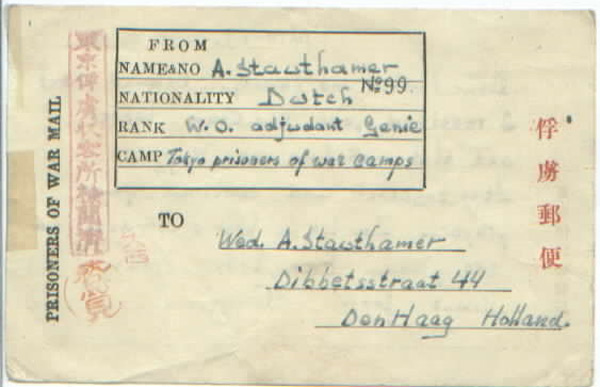 FROM
NAME&NO A. Stawthamer
No 99.
NATIONALITY Dutch
RANK W.O. adjudant Genie
CAMP Tokyo prisoners of war camps
TO
Wed. A. Stawthamer
Dibbetsstraat 44
Den Haag Holland.
PRISONERS OF WAR MAIL
東京俘虜収容所検閲濟
俘虜郵便